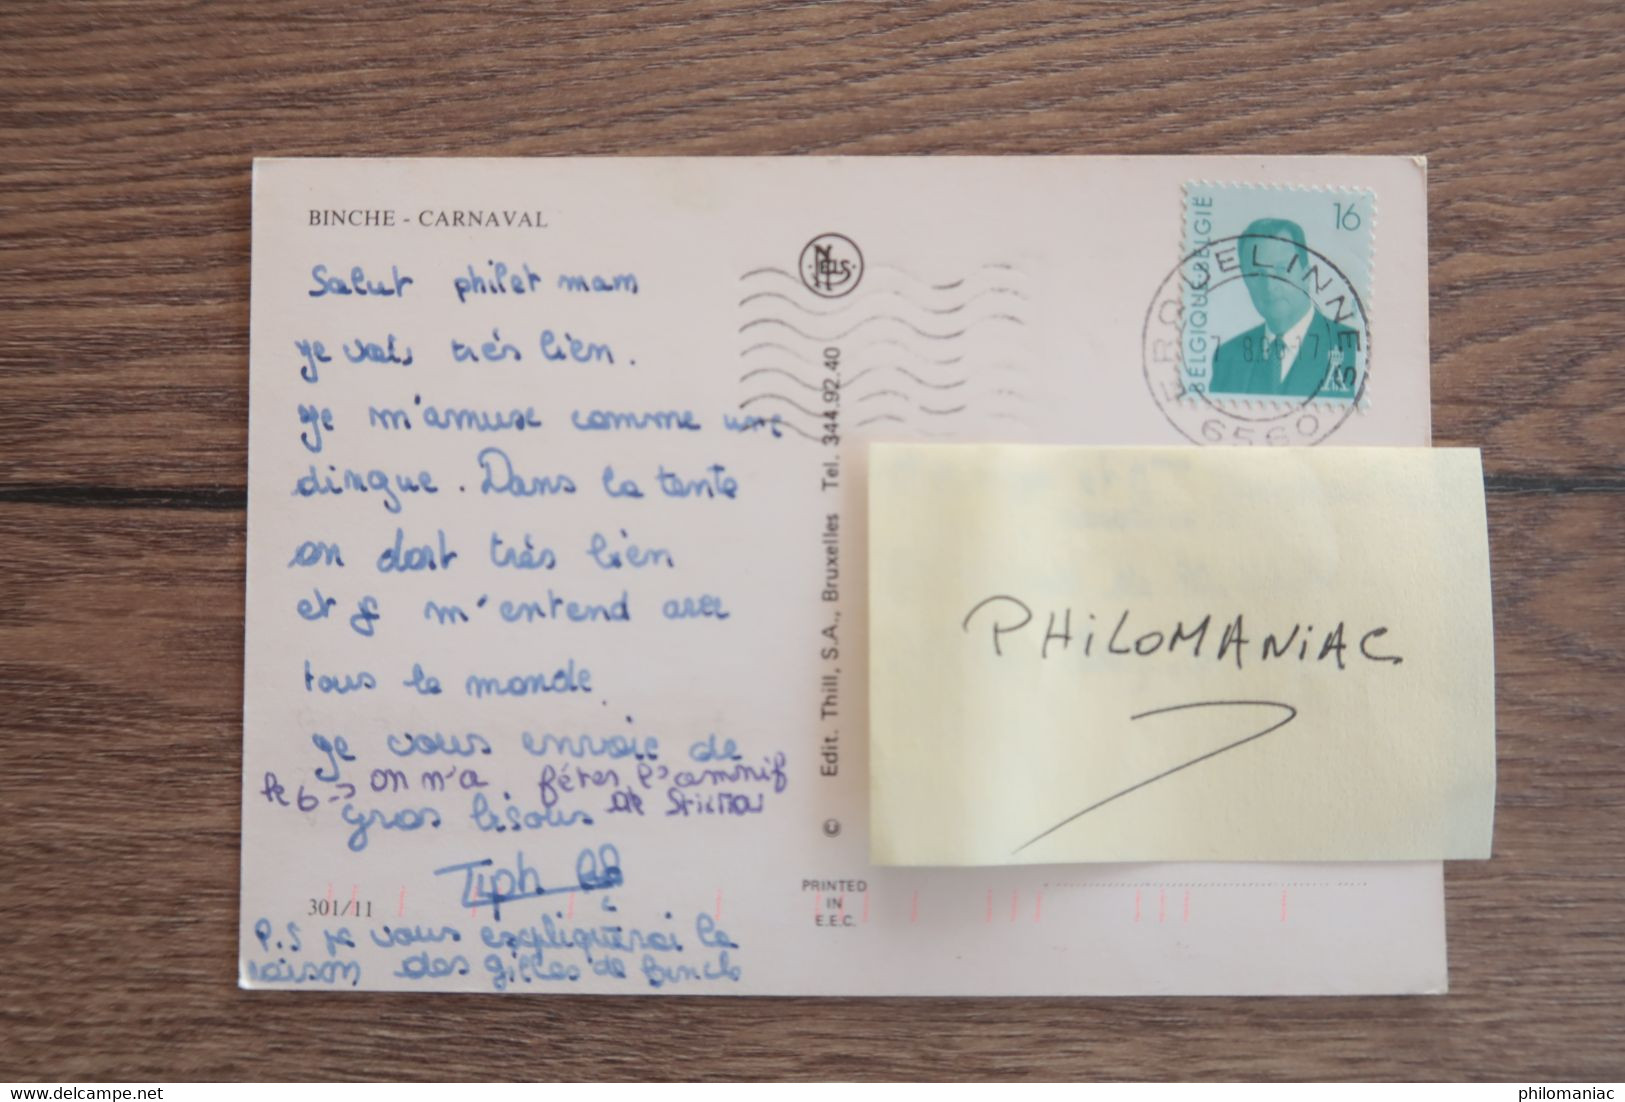 BINCHE - CARNAVAL
Salut phil et mam
je vais très bien.
je m'amuse comme une
dingue. Dans la tente
on dort très bien
et je m'entend avec
tous le monde.
je vous envoie de
le 6 -> on n'a fêter l'
de
gros bisous
Tiph
301/11
P.S je vous expliquerai la
raison des gilles de Binche
NELS
© Edit. Thill, S.A., Bruxelles Tel. 344.92.40
PRINTED
IN
E.E.C.
BELGIQUE-BELGIË
16
ERQUELINNES
6560
PHiLOMANiAC
https://www.delcampe.net
philomaniac